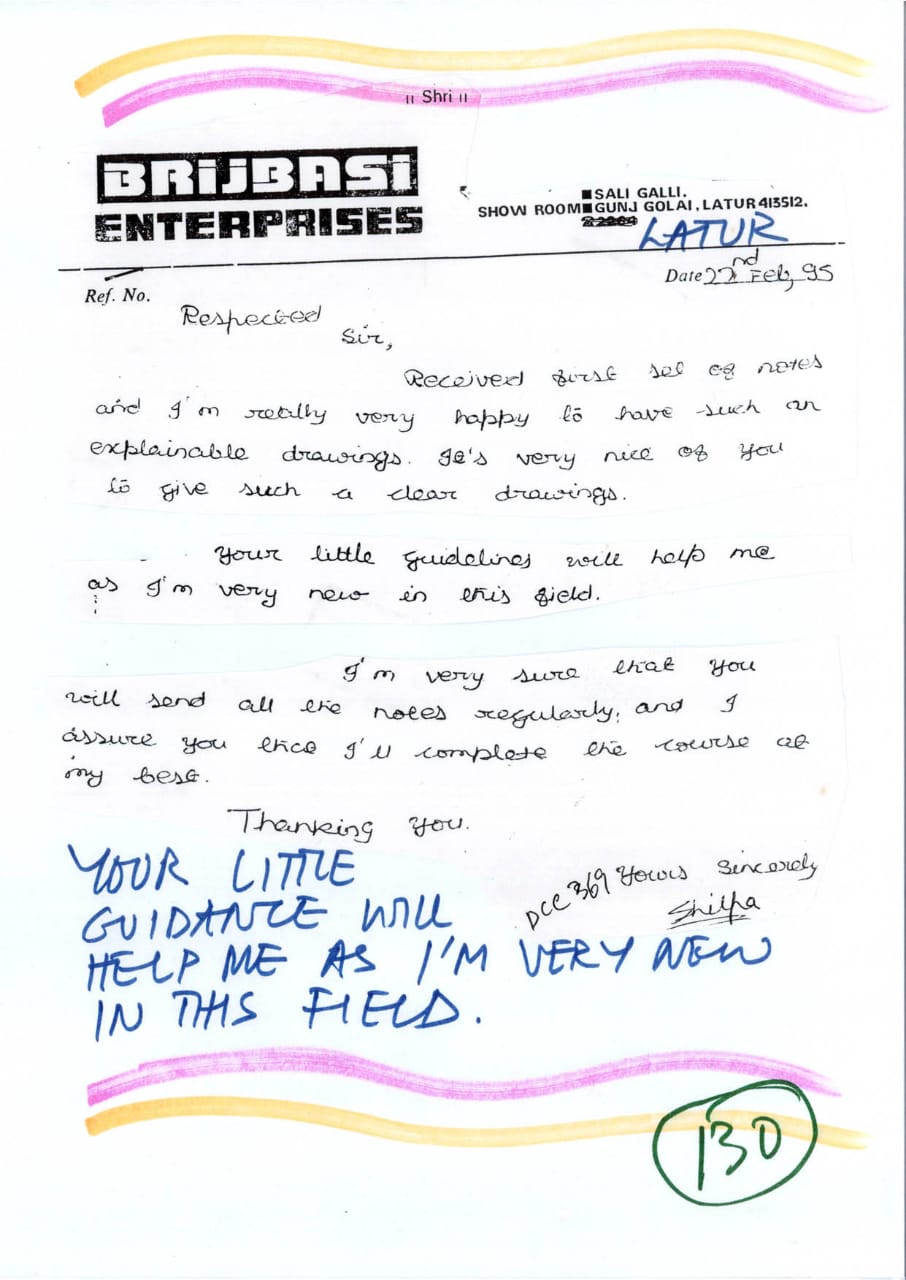 ॥ Shri ॥
BRIJBASI
ENTERPRISES
SALI GALLI.
SHOW ROOM GUNJ GOLAI, LATUR 413512.
LATUR
Date 22nd Feb, 95
Ref. No.
Respected
Sir,
Received first set of notes
and I'm really very happy to have such an
explainable drawings. It's very nice of you
to give such a clear drawings.
Your little guidelines will help me
as I'm very new in this field.
I'm very sure that you
will send all the notes regularly, and I
assure you that I'll complete the course at
my best.
Thanking you.
DCC 369 Yours Sincerely
Shilpa
YOUR LITTLE
GUIDANCE WILL
HELP ME AS I'M VERY NEW
IN THIS FIELD.
130